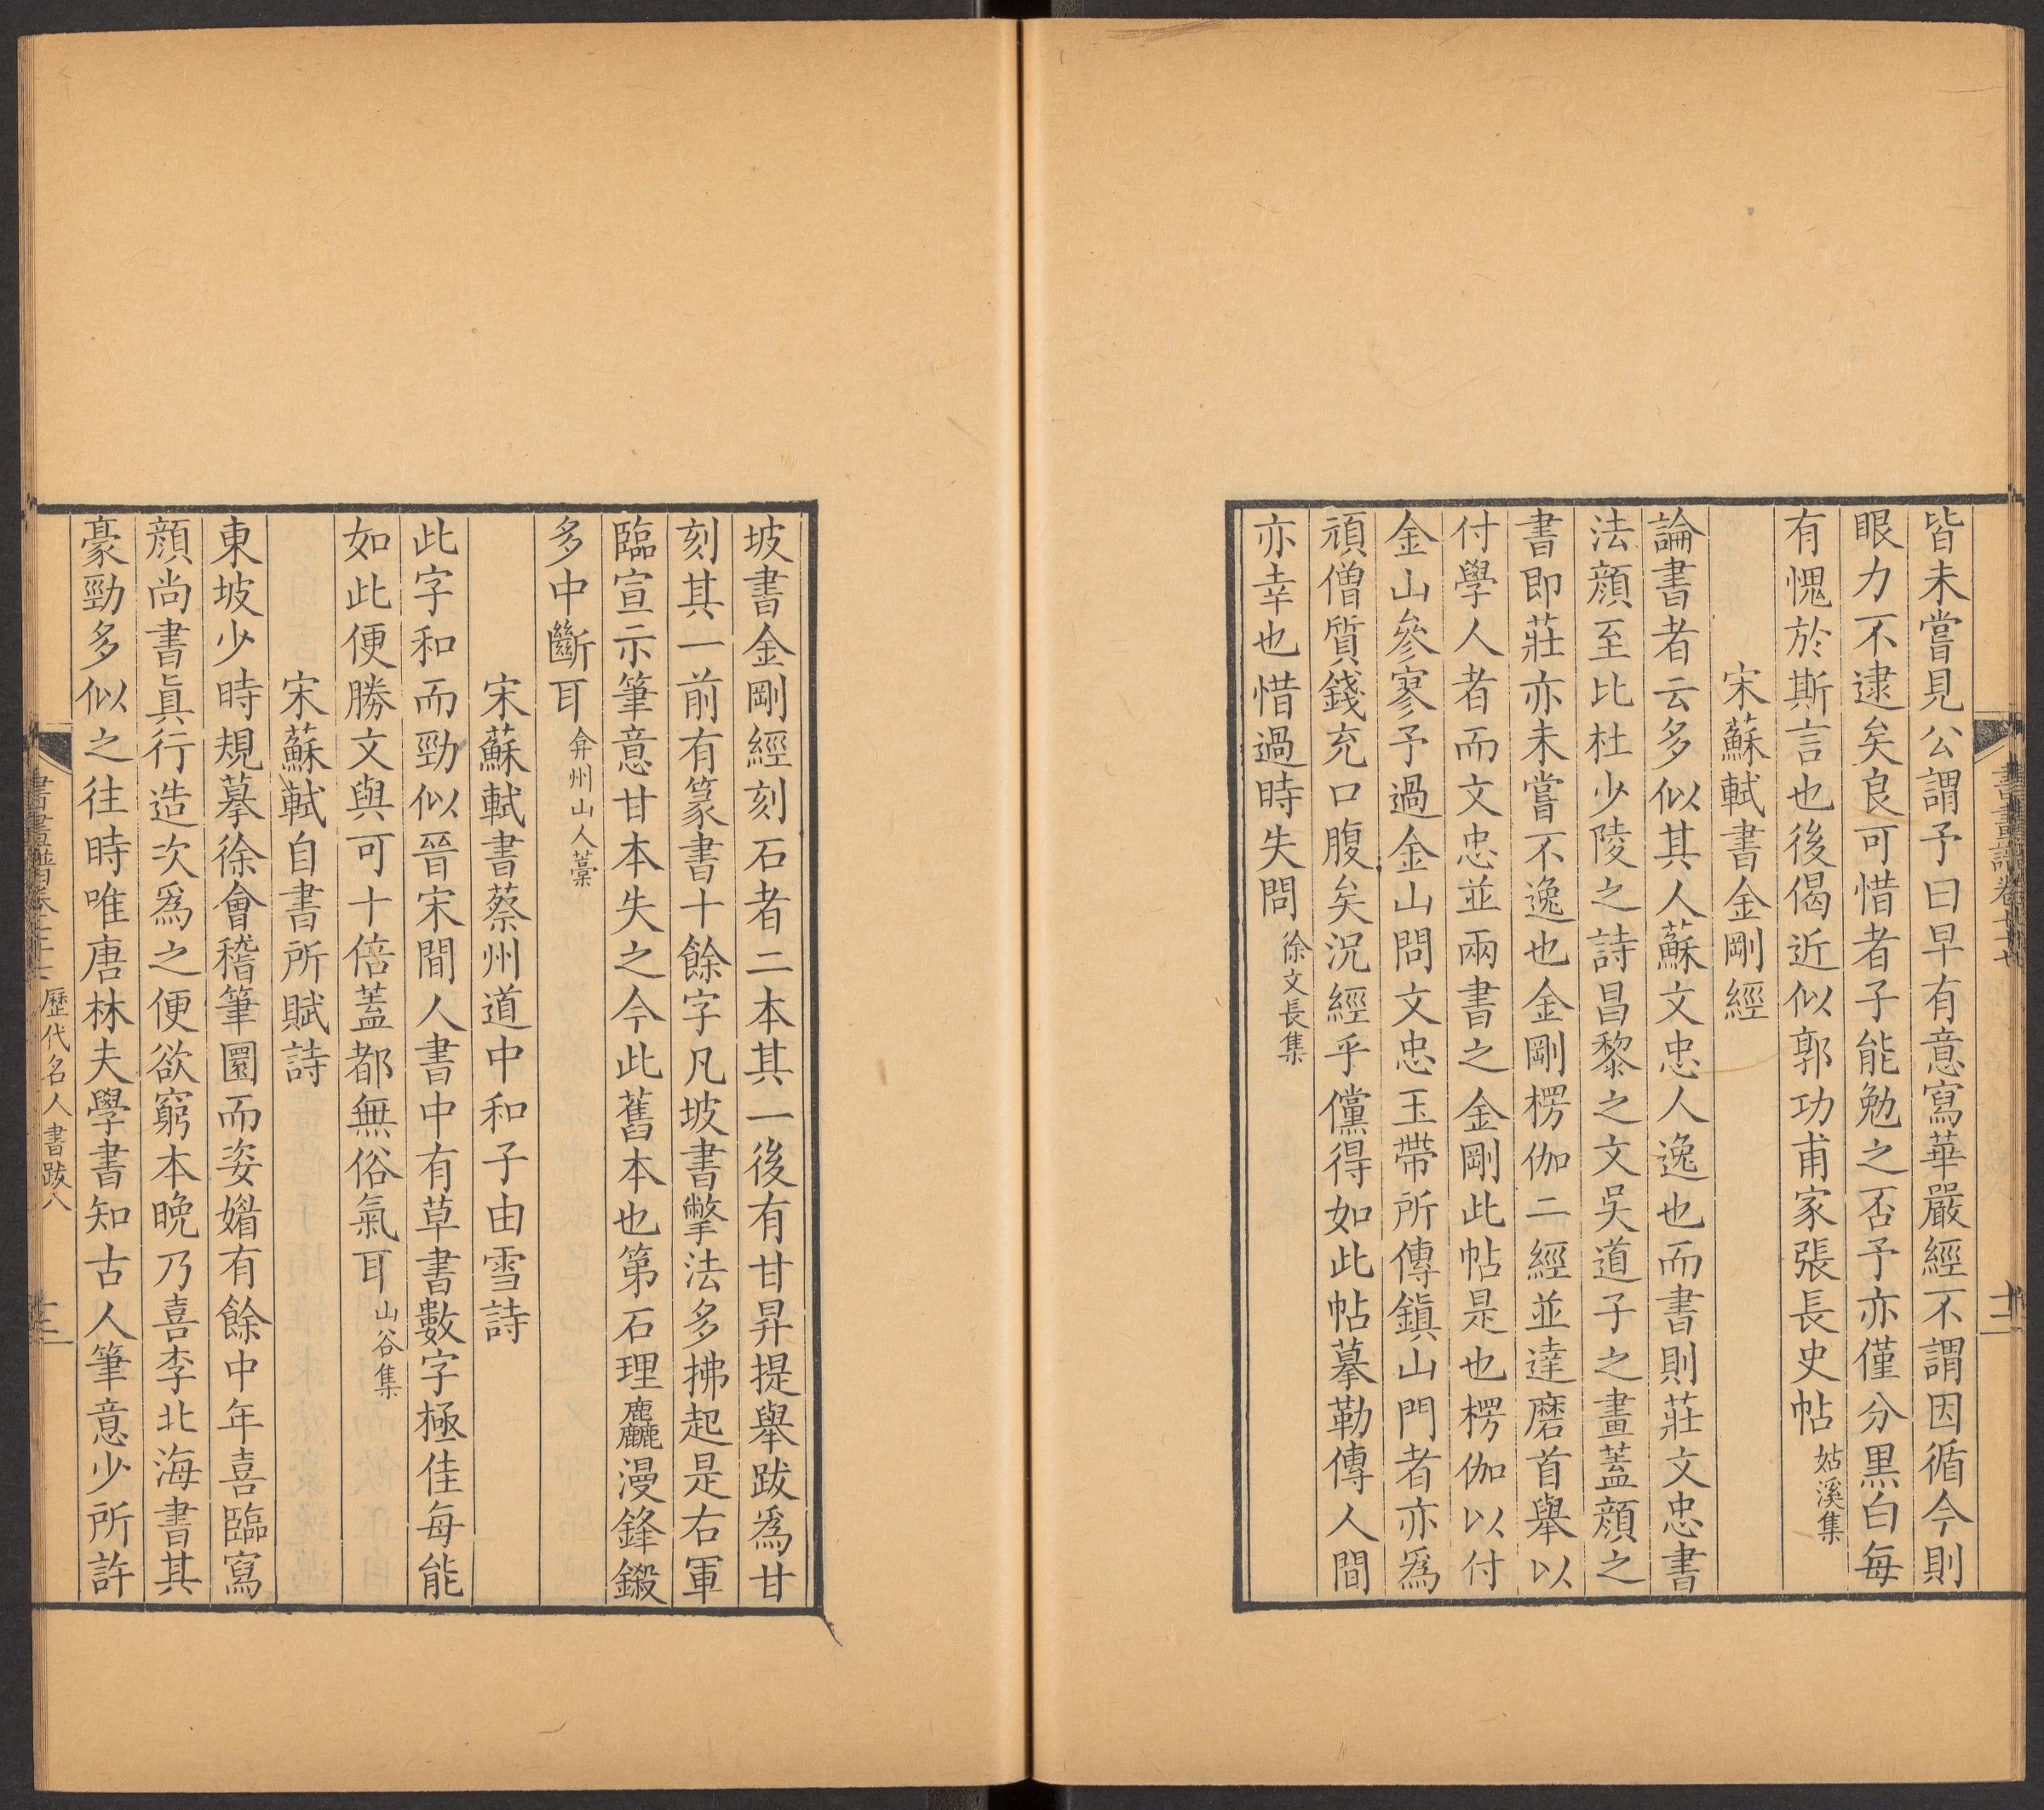 皆未嘗見公謂予曰早有意寫華嚴經不謂因循今則
眼力不逮矣良可惜者子能勉之否予亦僅分黒白每
有愧於斯言也後偈近似郭功甫家張長史帖姑溪集
宋蘇軾書金剛經
論書者云多似其人蘇文忠人逸也而書則莊文忠書
法顔至比杜少陵之詩昌黎之文吳道子之畫蓋顔之
書即莊亦未嘗不逸也金剛楞伽二經並達磨首舉以
付學人者而文忠並兩書之金剛此帖是也楞伽以付
金山參寥予過金山問文忠玉帶所傳鎭山門者亦爲
頑僧質錢充口腹矣況經乎儻得如此帖摹勒傳人間
亦幸也惜過時失問徐文長集
坡書金剛經刻石者二本其一後有甘昇提舉跋爲甘
刻其一前有篆書十餘字凡坡書擎法多拂起是右軍
臨宣示筆意甘本失之今此舊本也第石理麤漫鋒鍛
多中斷耳弇州山人藁
宋蘇軾書蔡州道中和子由雪詩
此字和而勁似晉宋間人書中有草書數字極佳每能
如此便勝文與可十倍蓋都無俗氣耳山谷集
宋蘇軾自書所賦詩
東坡少時規摹徐會稽筆圜而姿媚有餘中年喜臨寫
顔尚書眞行造次爲之便欲窮本晩乃喜李北海書其
豪勁多似之往時唯唐林夫學書知古人筆意少所許
歷代名人書跋八